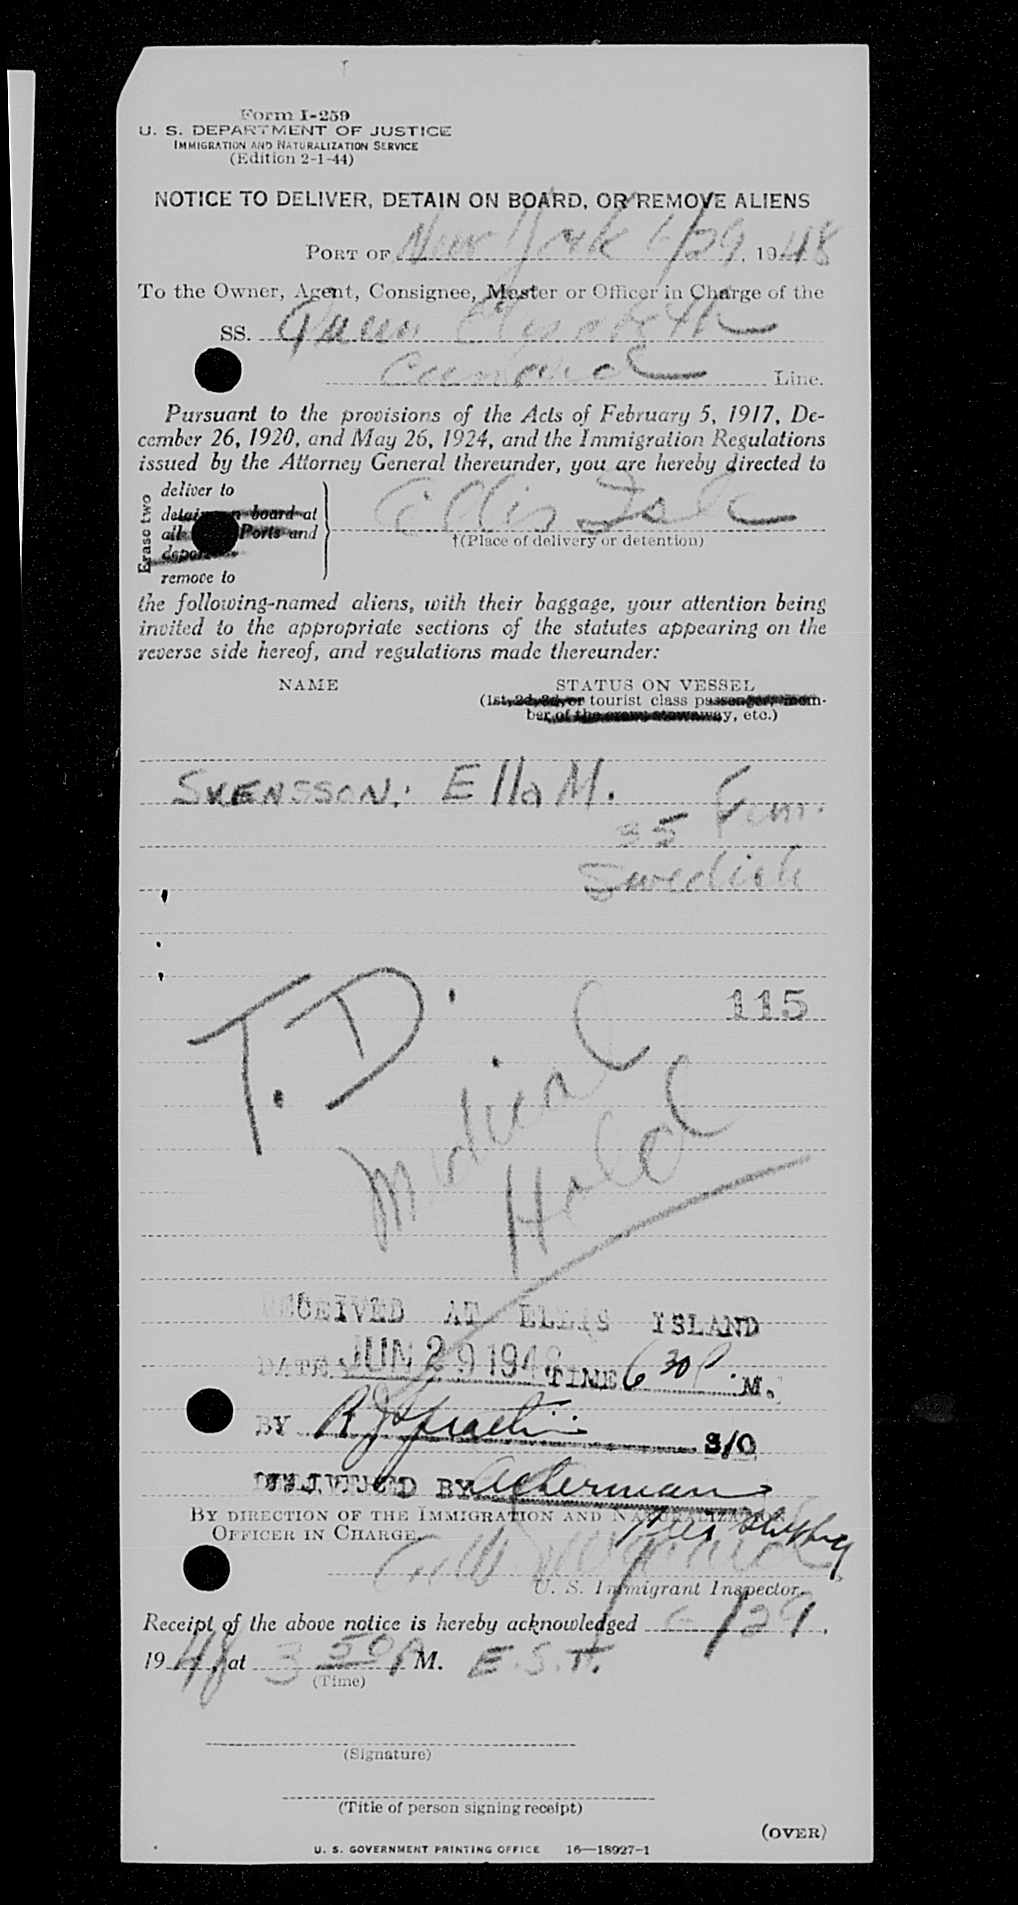 Form I-259
U. S. DEPARTMENT OF JUSTICE
IMMIGRATION AND NATURALIZATION SERVICE
(Edition 2-1-44)
NOTICE TO DELIVER, DETAIN ON BOARD, OR REMOVE ALIENS
PORT OF New York 6/29, 1948
To the Owner, Agent, Consignee, Master or Officer in Charge of the
SS. Queen Elizabeth
Cunard Line.
Pursuant to the provisions of the Acts of February 5, 1917, De-
cember 26, 1920, and May 26, 1924, and the Immigration Regulations
issued by the Attorney General thereunder, you are hereby directed to
Erase two
deliver to
board at
Ports and
remove to
Ellis Isle
†(Place of delivery or detention)
the following-named aliens, with their baggage, your attention being
invited to the appropriate sections of the statutes appearing on the
reverse side hereof, and regulations made thereunder:
NAME STATUS ON VESSEL
(1st, 2d, 3d, or tourist class passenger, mem-
ber of the crew, stowaway, etc.)
SVENSSON, Ella M.
35 Fem.
Swedish
115
T.D.
Medical
Hold
RECEIVED AT ELLIS ISLAND
DATE JUN 29 1948 TIME 6 30 P. M.
BY S/O
DELIVERED BY Ackerman
BY DIRECTION OF THE IMMIGRATION AND NATURALIZATION
OFFICER IN CHARGE.
U. S. Immigrant Inspector.
Receipt of the above notice is hereby acknowledged 6/29,
1948, at 3 50 P M. E.S.T.
(Time)
(Signature)
(Title of person signing receipt)
(OVER)
U. S. GOVERNMENT PRINTING OFFICE 16—18927-1